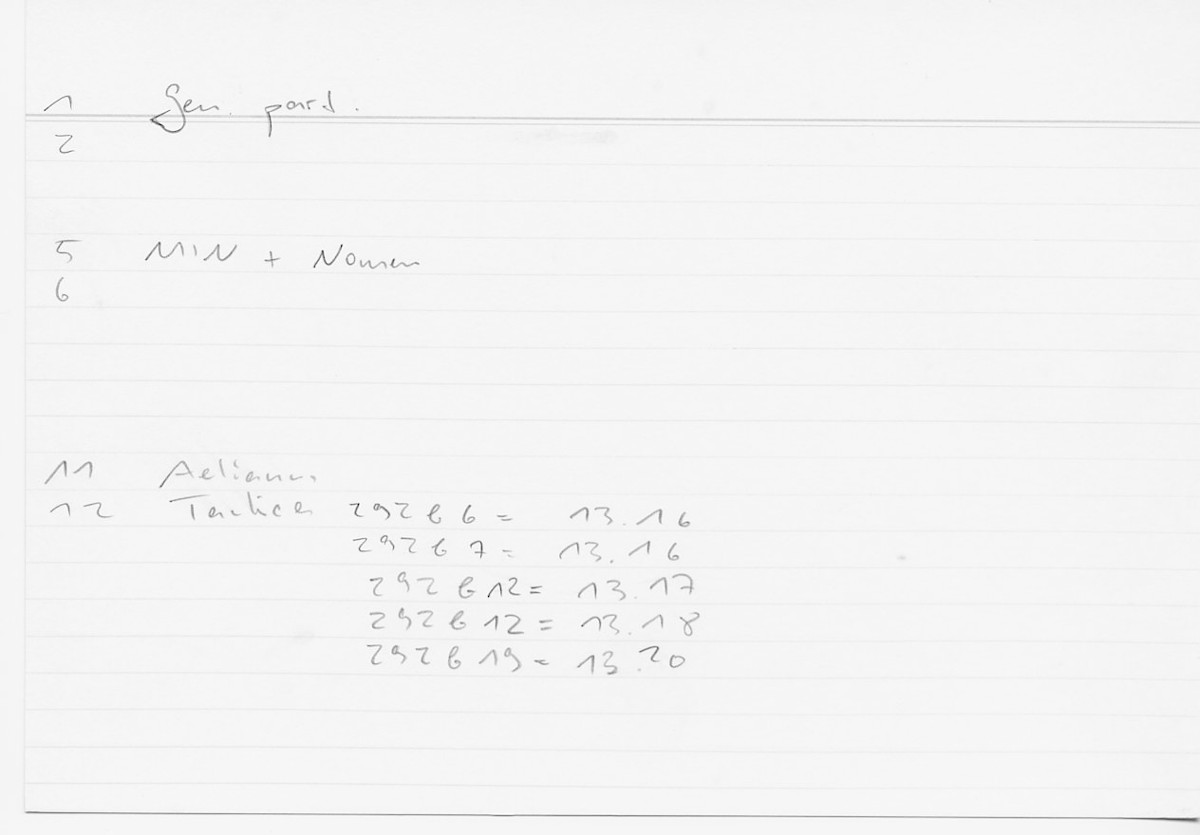 1 Gen. part.
2
5 MIN + Nomen
6
11 Aelianus
12 Tactica 292 b 6 = 13.16
292 b 7 = 13.16
292 b 12 = 13.17
292 b 12 = 13.18
292 b 19 = 13.20